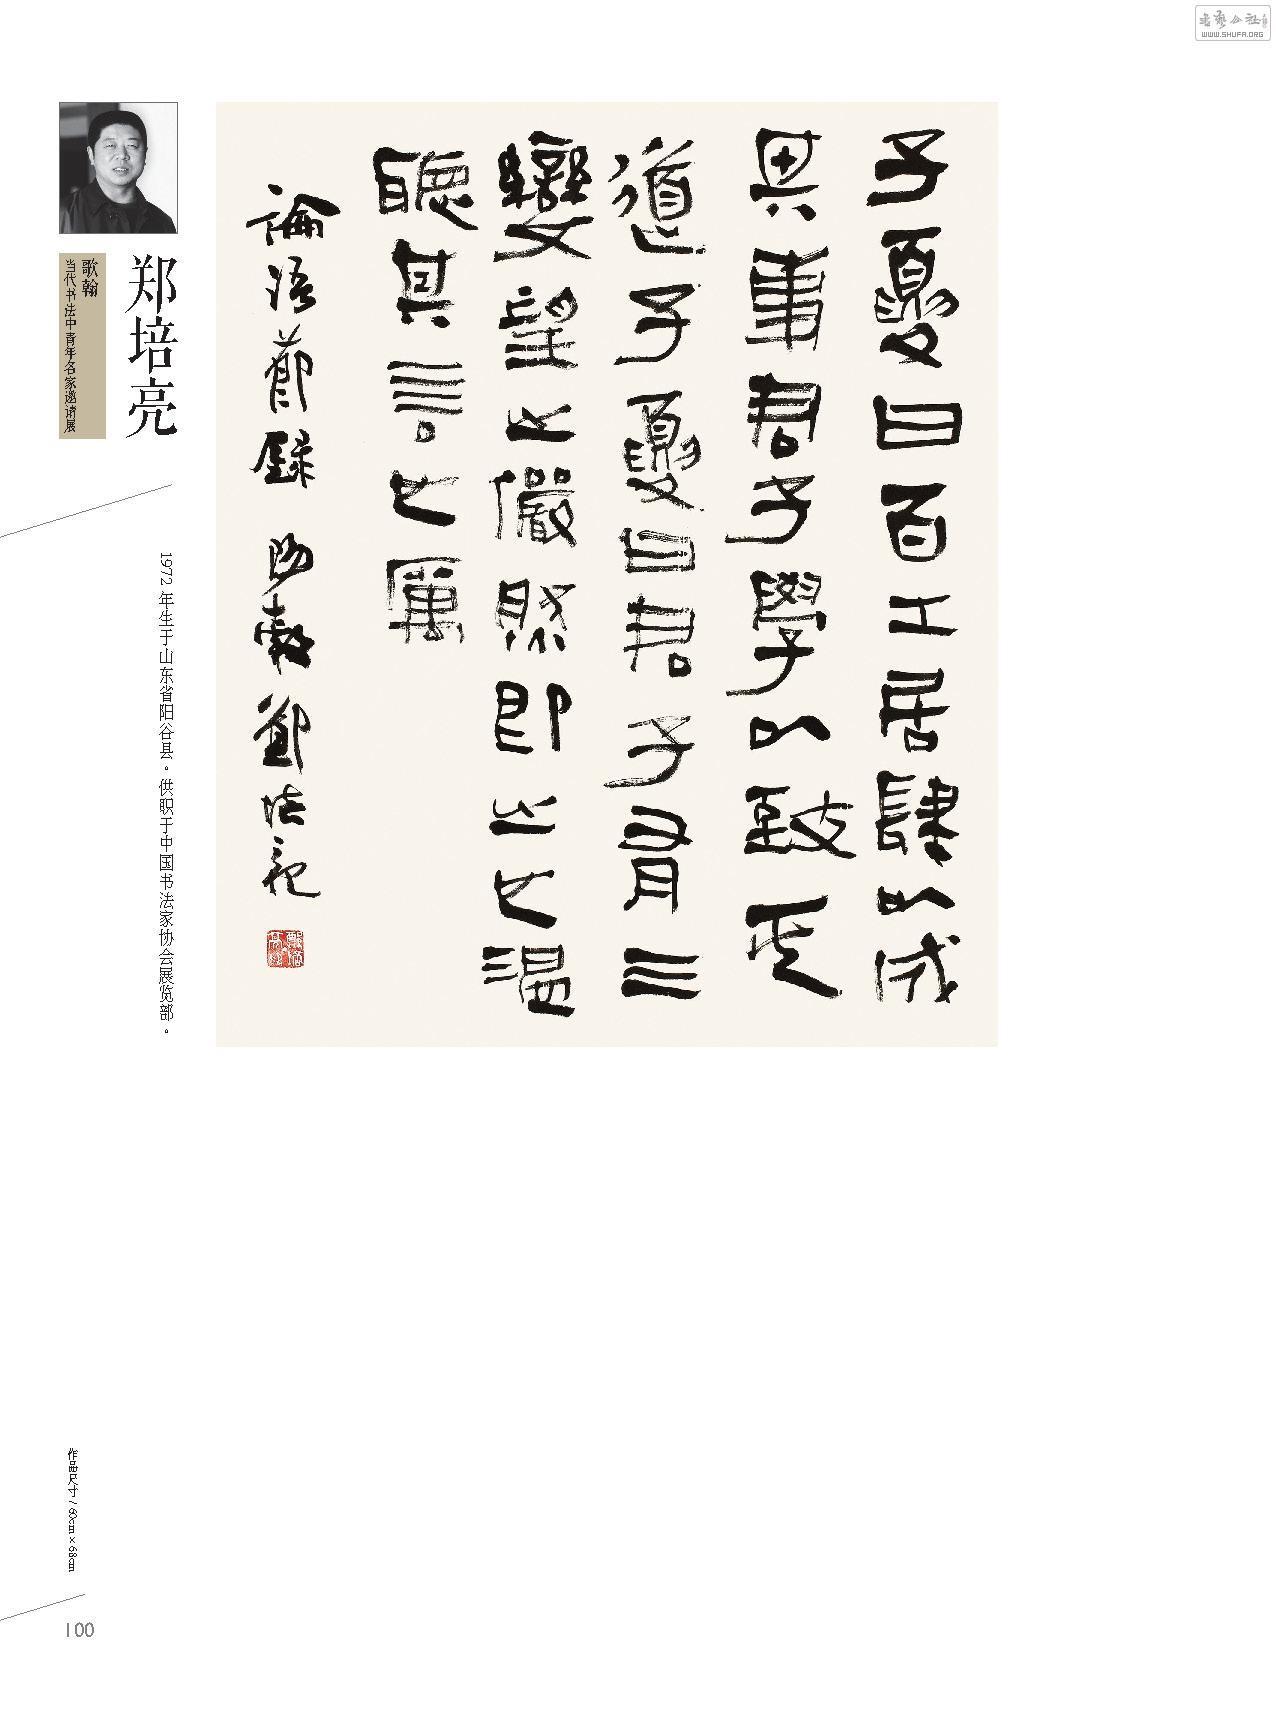 书艺公社
WWW.SHUFA.ORG
郑培亮
歌翰
当代书法中青年名家邀请展
1972年生于山东省阳谷县。供职于中国书法家协会展览部。
子夏曰百工居肆以成
其事君子學以致其
道子夏曰君子有三
變望之儼然即之也溫
聽其言也厲
論語節錄 陽穀鄭培亮
作品尺寸/60cm×68cm
100